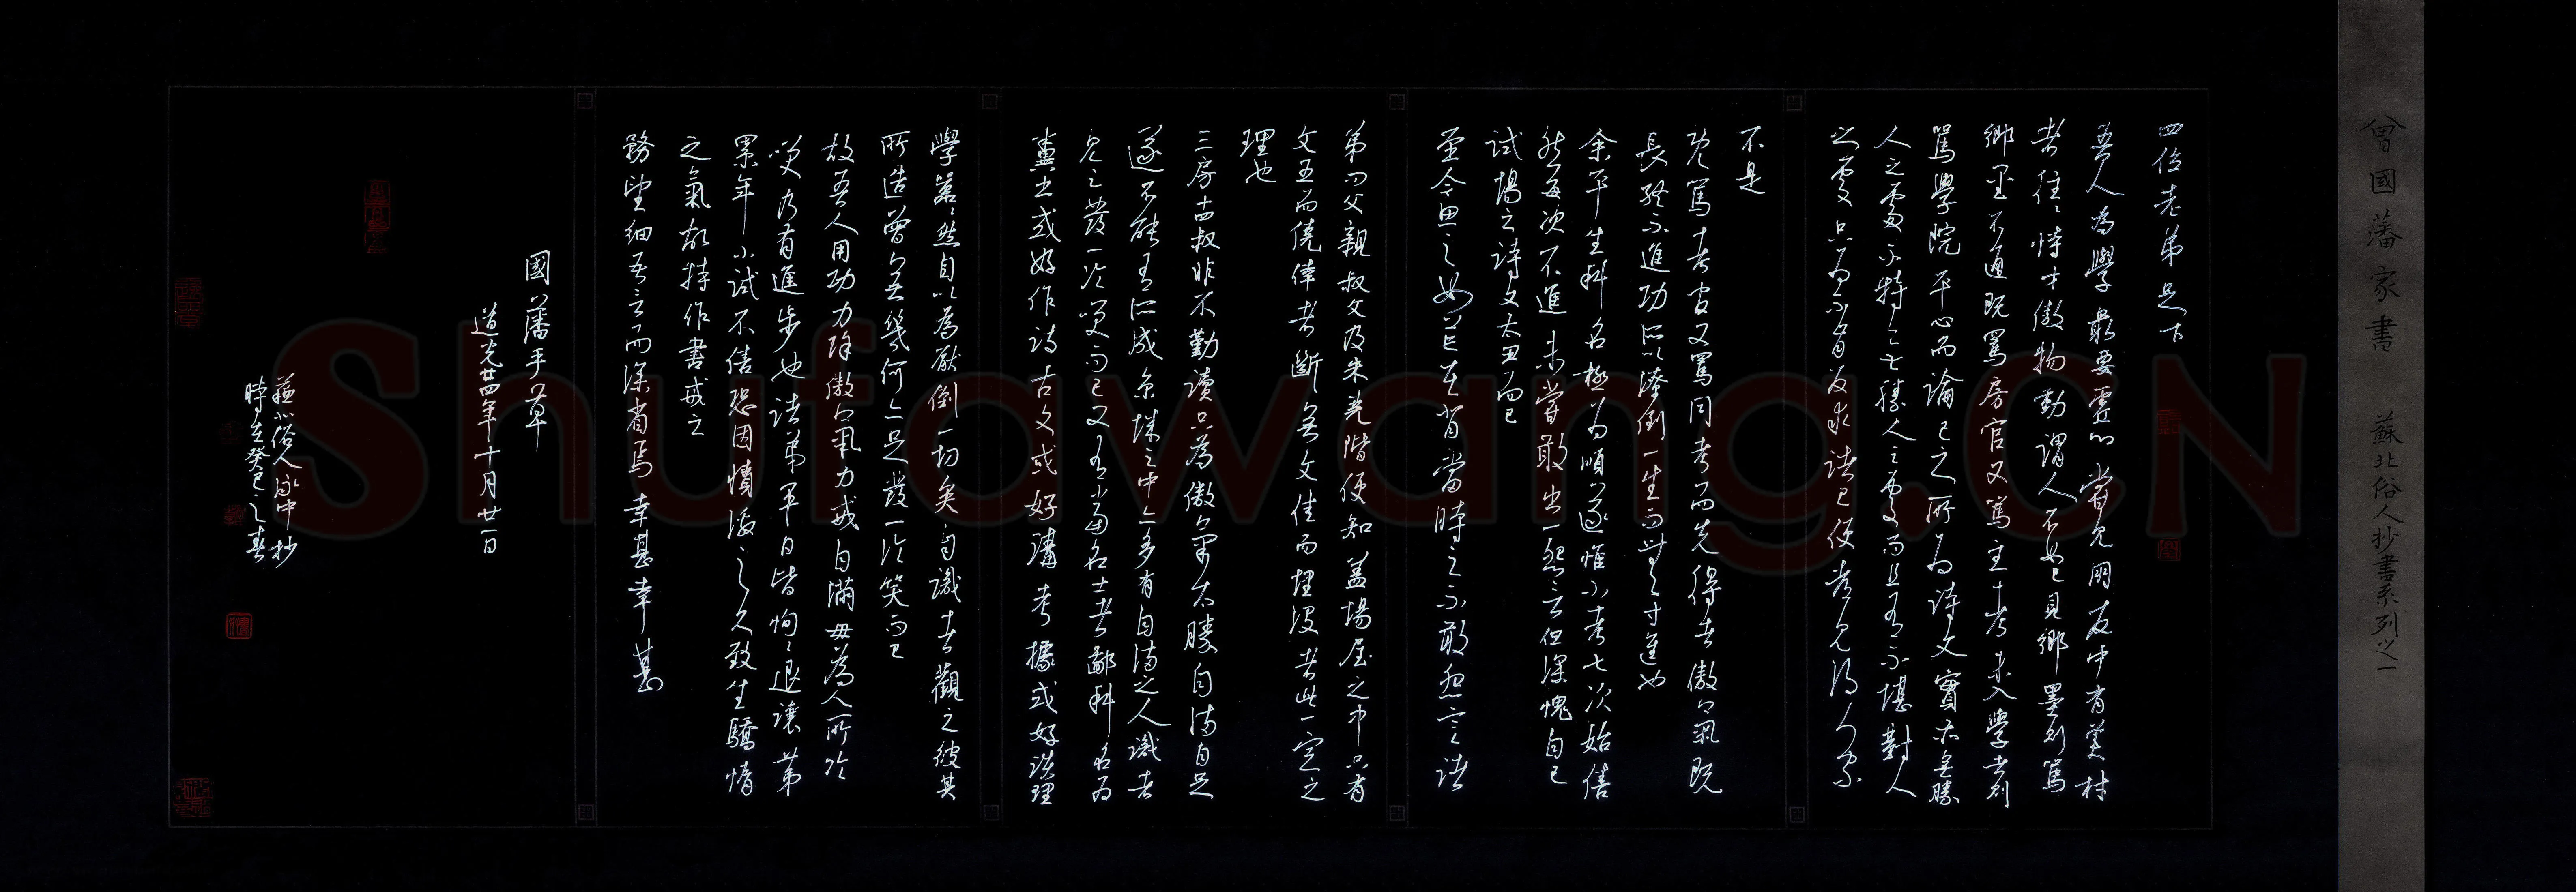 曾國藩家書 蘇北俗人抄書系列之一
四位老弟足下
吾人為學最要虛心嘗見朋友中有美材
者往往恃才傲物動謂人不如己見鄉墨則罵
鄉墨不通既罵房官又罵主考未入學者則
罵學院平心而論己之所為詩文實亦無勝
人之處不特無勝人之處而且有不堪對人
之處只為不肯反求諸己便者見得人家
不是
既罵考官又罵同考而先得者傲氣既
長終不進功所以潦倒一生而無寸進也
余平生科名極為順遂惟小考七次始售
然每次不進未嘗敢出一怨言但深愧自己
試場之詩文太丑而已
至今思之如芒在背當時之不敢怨言諸
弟問父親叔父及朱堯階便知蓋場屋之中只有
文丑而僥倖者斷無文佳而埋沒者此一定之
理也
三房十四叔非不勤讀只為傲氣太勝自滿自足
遂不能有所成京城之中亦多有自滿之人識者
見之發一冷笑而已又有當名士者鄙科名為
糞土或好作詩古文或好講考據或好談理
學囂囂然自以為壓倒一切矣自識者觀之彼其
所造曾無幾何亦足發一冷笑而已
故吾人用功力除傲氣力戒自滿毋為人所冷
笑乃有進步也諸弟平日皆恂恂退讓第
累年小試不售恐因憤激之久致生驕惰
之氣故特作書戒之
務望細吾言而深省焉幸甚幸甚
國藩手草
道光廿四年十月廿一日
蘇北俗人泳中抄
時在癸巳之春
Shufawang.CN